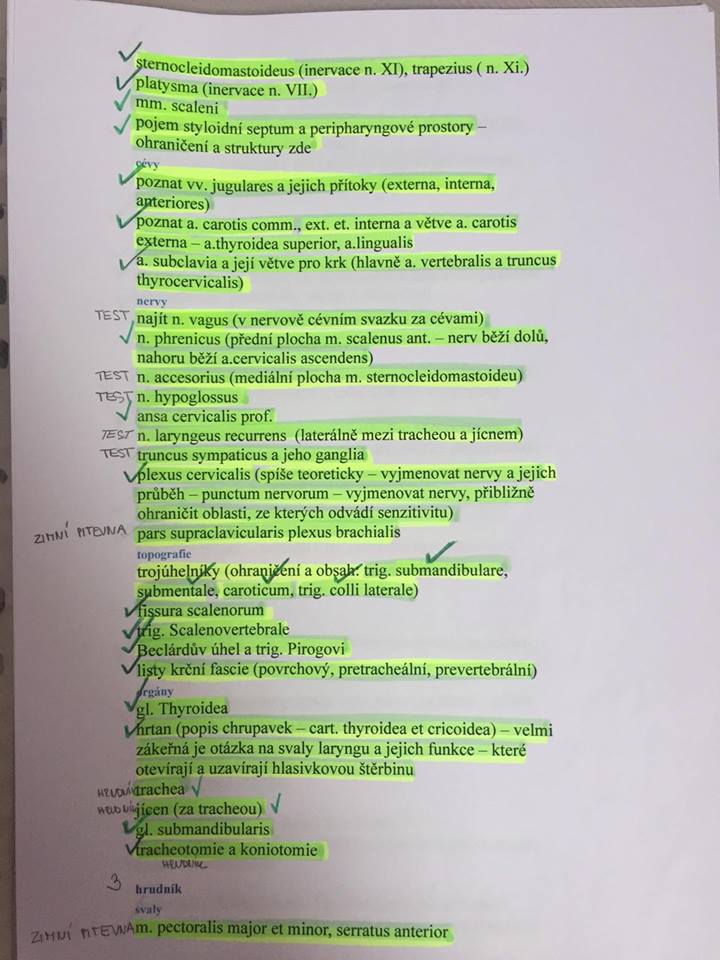 sternocleidomastoideus (inervace n. XI), trapezius ( n. Xi.)
platysma (inervace n. VII.)
mm. scaleni
pojem styloidní septum a peripharyngové prostory –
ohraničení a struktury zde
cévy
poznat vv. jugulares a jejich přítoky (externa, interna,
anteriores)
poznat a. carotis comm., ext. et. interna a větve a. carotis
externa – a.thyroidea superior, a.lingualis
a. subclavia a její větve pro krk (hlavně a. vertebralis a truncus
thyrocervicalis)
nervy
TEST najít n. vagus (v nervově cévním svazku za cévami)
n. phrenicus (přední plocha m. scalenus ant. – nerv běží dolů,
nahoru běží a.cervicalis ascendens)
TEST n. accesorius (mediální plocha m. sternocleidomastoideu)
TEST n. hypoglossus
ansa cervicalis prof.
TEST n. laryngeus recurrens (laterálně mezi tracheou a jícnem)
TEST truncus sympaticus a jeho ganglia
plexus cervicalis (spíše teoreticky – vyjmenovat nervy a jejich
průběh – punctum nervorum – vyjmenovat nervy, přibližně
ohraničit oblasti, ze kterých odvádí senzitivitu)
ZIMNÍ PITEVNA pars supraclavicularis plexus brachialis
topografie
trojúhelníky (ohraničení a obsah: trig. submandibulare,
submentale, caroticum, trig. colli laterale)
fissura scalenorum
trig. Scalenovertebrale
Beclárdův úhel a trig. Pirogovi
listy krční fascie (povrchový, pretracheální, prevertebrální)
orgány
gl. Thyroidea
hrtan (popis chrupavek – cart. thyroidea et cricoidea) – velmi
zákeřná je otázka na svaly laryngu a jejich funkce – které
otevírají a uzavírají hlasivkovou štěrbinu
HRUDNÍK trachea
HRUDNÍK jícen (za tracheou)
gl. submandibularis
tracheotomie a koniotomie
HRUDNÍK
3 hrudník
svaly
ZIMNÍ PITEVNA m. pectoralis major et minor, serratus anterior